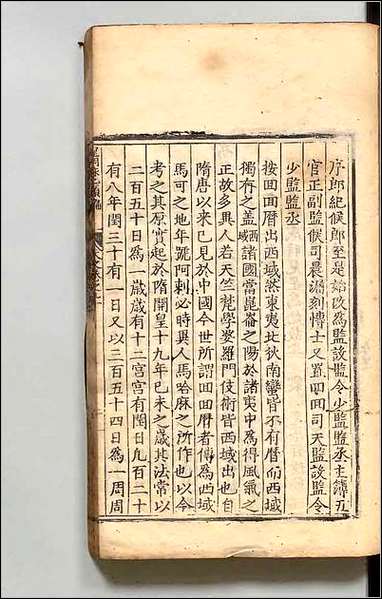 序郎紀候郎至是始改為監設監令少監監丞主簿五
官正副監候司晨漏刻博士又置回回司天監設監令
少監監丞
按回回曆出西域然東夷北狄南蠻皆不有曆而西域
獨有之蓋西域諸國當崑崙之陽於諸夷中為得風氣之
正故多異人若天竺梵學婆羅門伎術皆西域出也自
隋唐以来已見於中國今世所謂回回曆者傳為西域
馬可之地年號阿剌必時異人馬哈麻之所作也以今
考之其原實起於隋開皇十九年己未之歲其法常以
三百五十日為一歲歲有十二宮宮有閏日凡百二十
有八年閏三十有一日又以三百五十四日為一周周